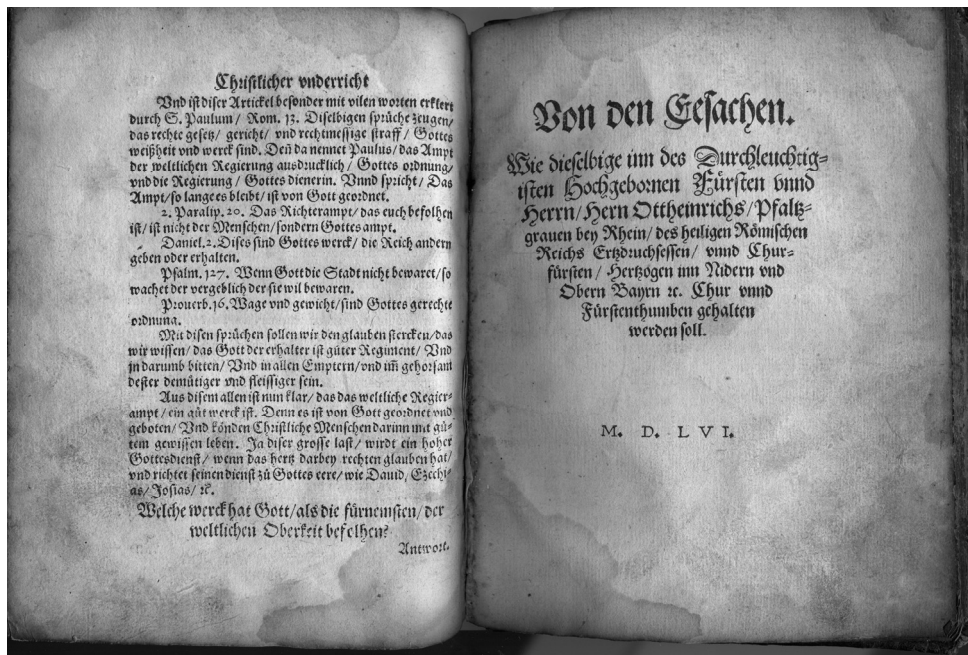 Christlicher vnderricht
Vnd ist diser Artickel besonder mit vilen worten erklert
durch S. Paulum / Rom. 13. Diselbigen sprüche zeugen/
das rechte gesetz/ gericht/ vnd rechtmessige straff / Gottes
weißheit vnd werck sind. Deñ da nennet Paulus/ das Ampt
der weltlichen Regierung ausdrucklich / Gottes ordnung/
vnd die Regierung / Gottes dienerin. Vnnd spricht / Das
Ampt/ so lang es bleibt/ ist von Gott geordnet.
2. Paralip. 20. Das Richterampt/ das euch befolhen
ist/ ist nicht der Menschen/ sondern Gottes ampt.
Daniel. 2. Dises sind Gottes werck/ die Reich andern
geben oder erhalten.
Psalm. 127. Wenn Gott die Stadt nicht bewaret/ so
wachet der vergeblich der sie wil bewaren.
Prouerb. 16. Wage vnd gewicht/ sind Gottes gerechte
ordnung.
Mit disen sprüchen sollen wir den glauben stercken/ das
wir wissen/ das Gott der erhalter ist güter Regiment/ Vnd
jn darumb bitten/ Vnd in allen Emptern/ vnd im̃ gehorsam
dester demütiger vnd fleissiger sein.
Aus disem allen ist nun klar/ das das weltliche Regier-
ampt/ ein güt werck ist. Denn es ist von Gott geordnet vnd
geboten/ Vnd könden Christliche Menschen darinn mit gü-
tem gewissen leben. Ja diser grosse last/ wirdt ein hoher
Gottesdienst/ wenn das hertz darbey rechten glauben hat/
vnd richtet seinen dienst zü Gottes eere/ wie Dauid, Ezechi-
as/ Josias/ ꝛc.
Welche werck hat Gott/ als die fürnemsten/ der
weltlichen Oberkeit befelhen?
Antwort.
Von den Eesachen.
Wie dieselbige inn des Durchleuchtig-
isten Hochgebornen Fürsten vnnd
Herrn/ Hern Ottheinrichs/ Pfaltz-
grauen bey Rhein/ des heiligen Römischen
Reichs Ertzdruchsessen/ vnnd Chur-
fürsten / Hertzogen inn Nidern vnd
Obern Bayrn ꝛc. Chur vnnd
Fürstenthumben gehalten
werden soll.
M. D. L V I.